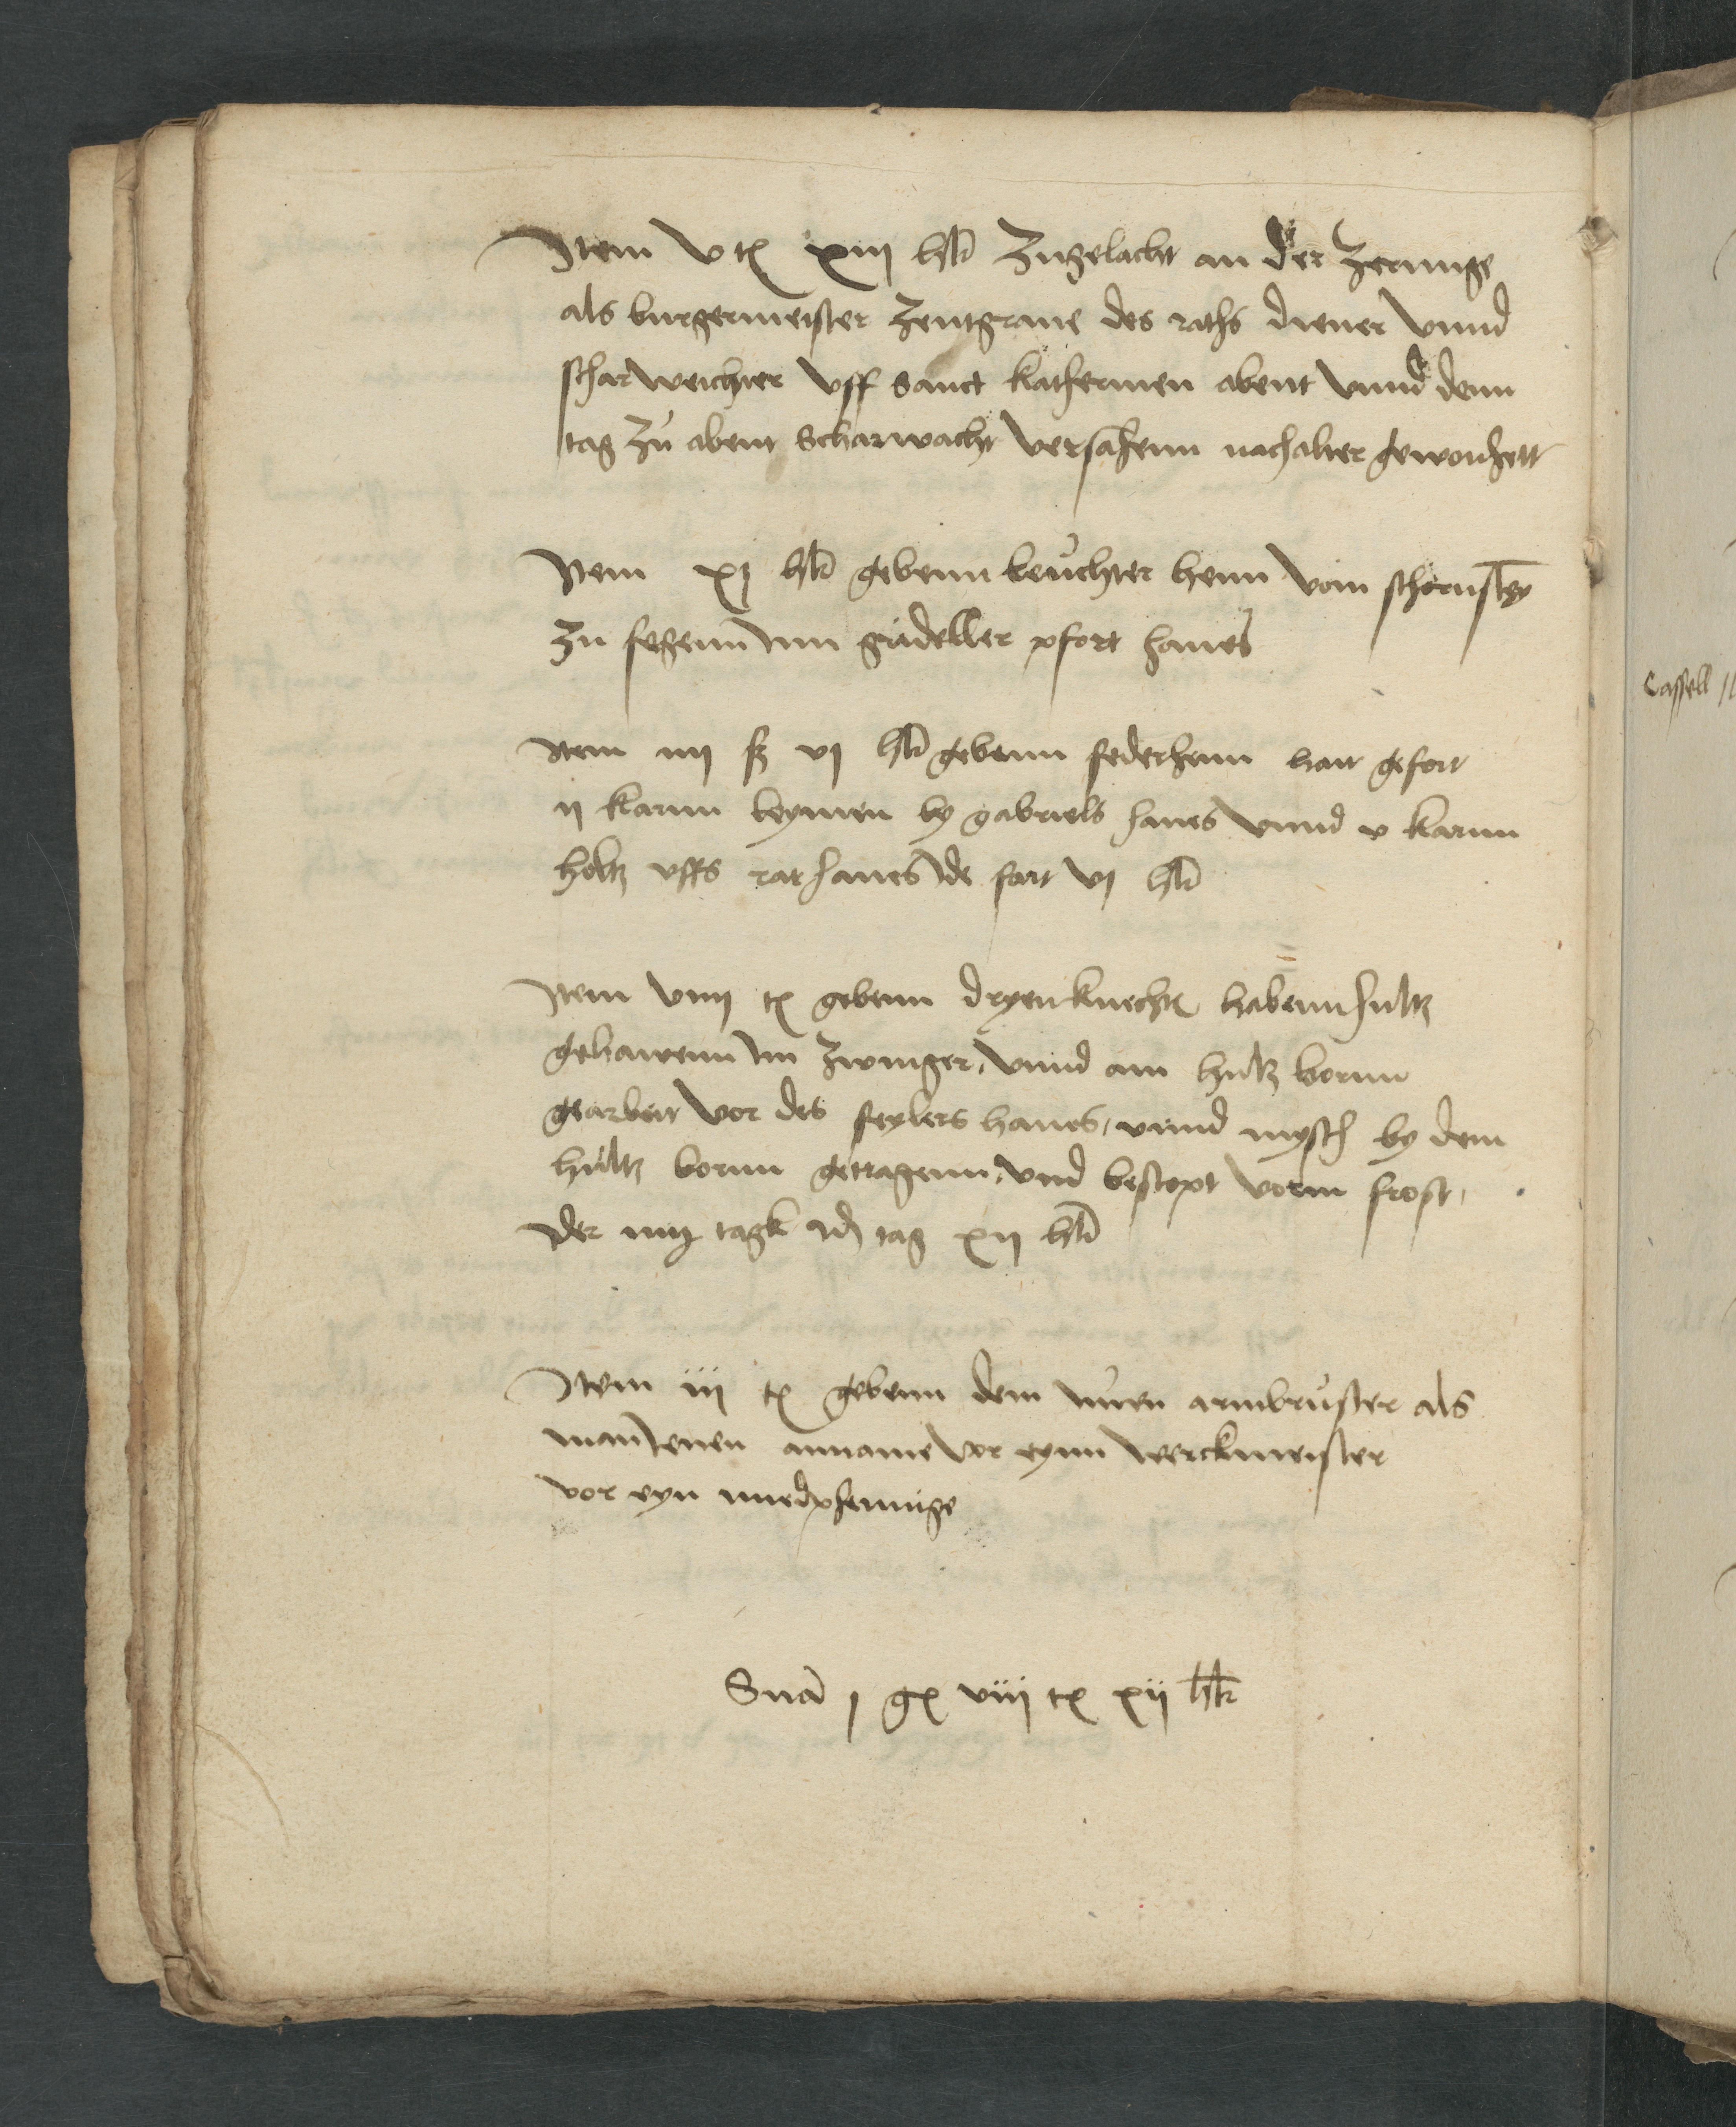 Item v tꝭ xiiij hlr zugelacht an der zerunge
als burgermeister zentgraue des raths diener vnnd
scharwechter vff sanct katherinen abent vnnd denn
tag zu abent scharwacht versahenn nach alter gewonhett
Item xj hlr gebenn leuchter henn vom schornstey
zu fegenn inn gudeller pfort hawes
Item iiij ß vj hlr gebenn federhenn hait gefort
ij karnn leymen by gabriels hawes vnnd v karnn
holtz vffs rathawes ide fart vj hlr
Item viiij tꝭ gebenn dryen knechten habenn hultz
gehawenn im zwinger, vnnd am hultz bornn
gearbeit vor des seylers hawes, vnnd mysth by dem
hultz bornn getragenn, vnd bestopt vorm frost,
der iiij tagk id tag xij hlr
Item iij tꝭ gebenn dem nuwen armbruster als
man enen anname vor eynn werckmeister
vor eyn miedpfennige
Suma j gꝭ viij tꝭ xij hlr
Cassell